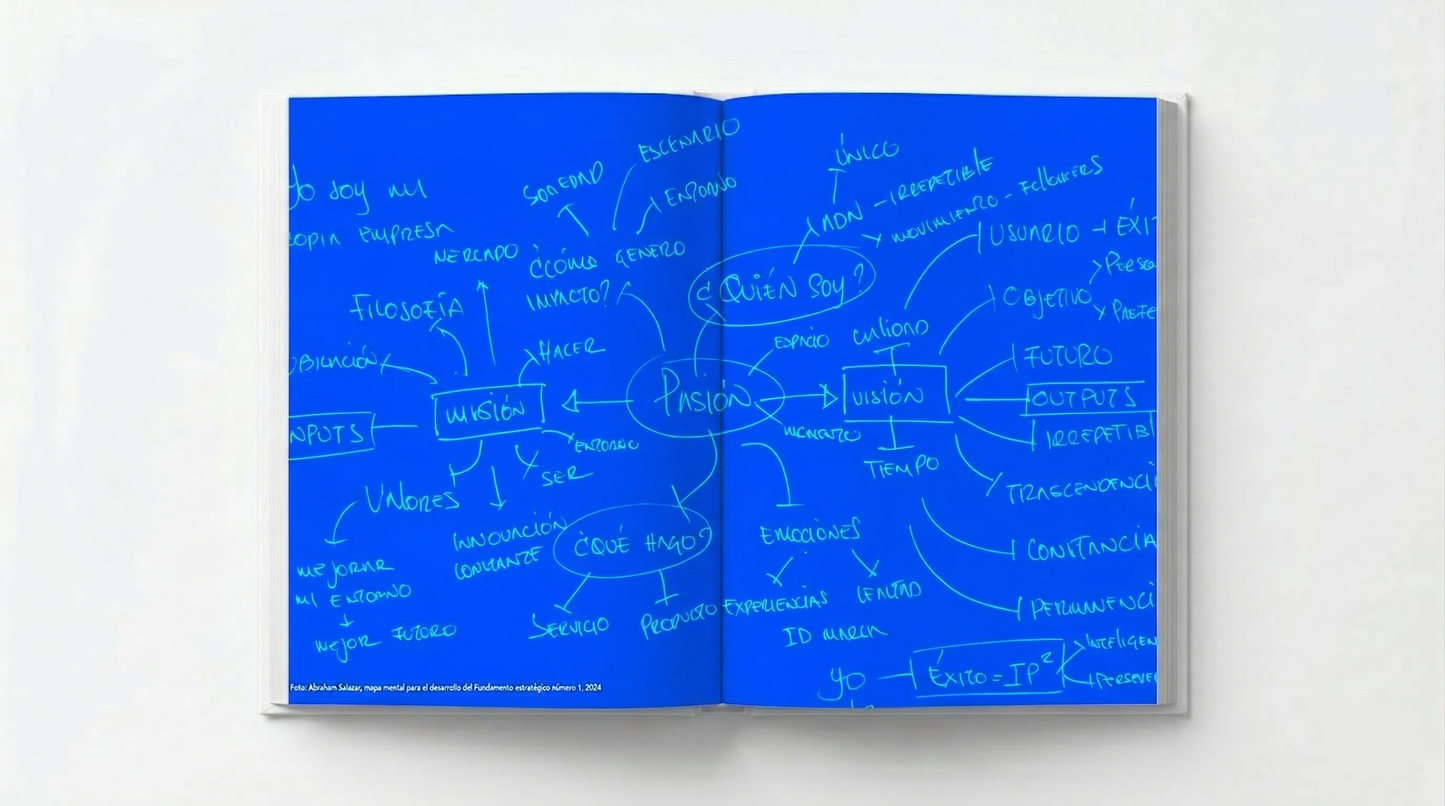 Yo soy mi
empresa
MERCADO
SOCIEDAD
ESCENARIO
ENTORNO
¿CÓMO GENERO
IMPACTO?
FILOSOFÍA
UBICACIÓN
HACER
MISIÓN
INPUTS
ENTORNO
SER
VALORES
INNOVACIÓN
CONSTANTE
MEJORAR
MI ENTORNO
MEJOR FUTURO
¿QUÉ HAGO?
SERVICIO
PRODUCTO
PASIÓN
ÚNICO
ADN - IRREPETIBLE
MOVIMIENTO - FOLLOWERS
¿QUIÉN SOY?
ESPACIO
MOMENTO
CALIDAD
VISIÓN
TIEMPO
USUARIO
OBJETIVO
FUTURO
OUTPUTS
IRREPETIBL
TRASCENDENCI
CONSTANCIA
PERMANENCI
EMOCIONES
EXPERIENCIAS
LEALTAD
ID MARCA
yo
ÉXITO = IP²
INTELIGEN
PERSEVE
Foto: Abraham Salazar, mapa mental para el desarrollo del Fundamento estratégico número 1, 2024